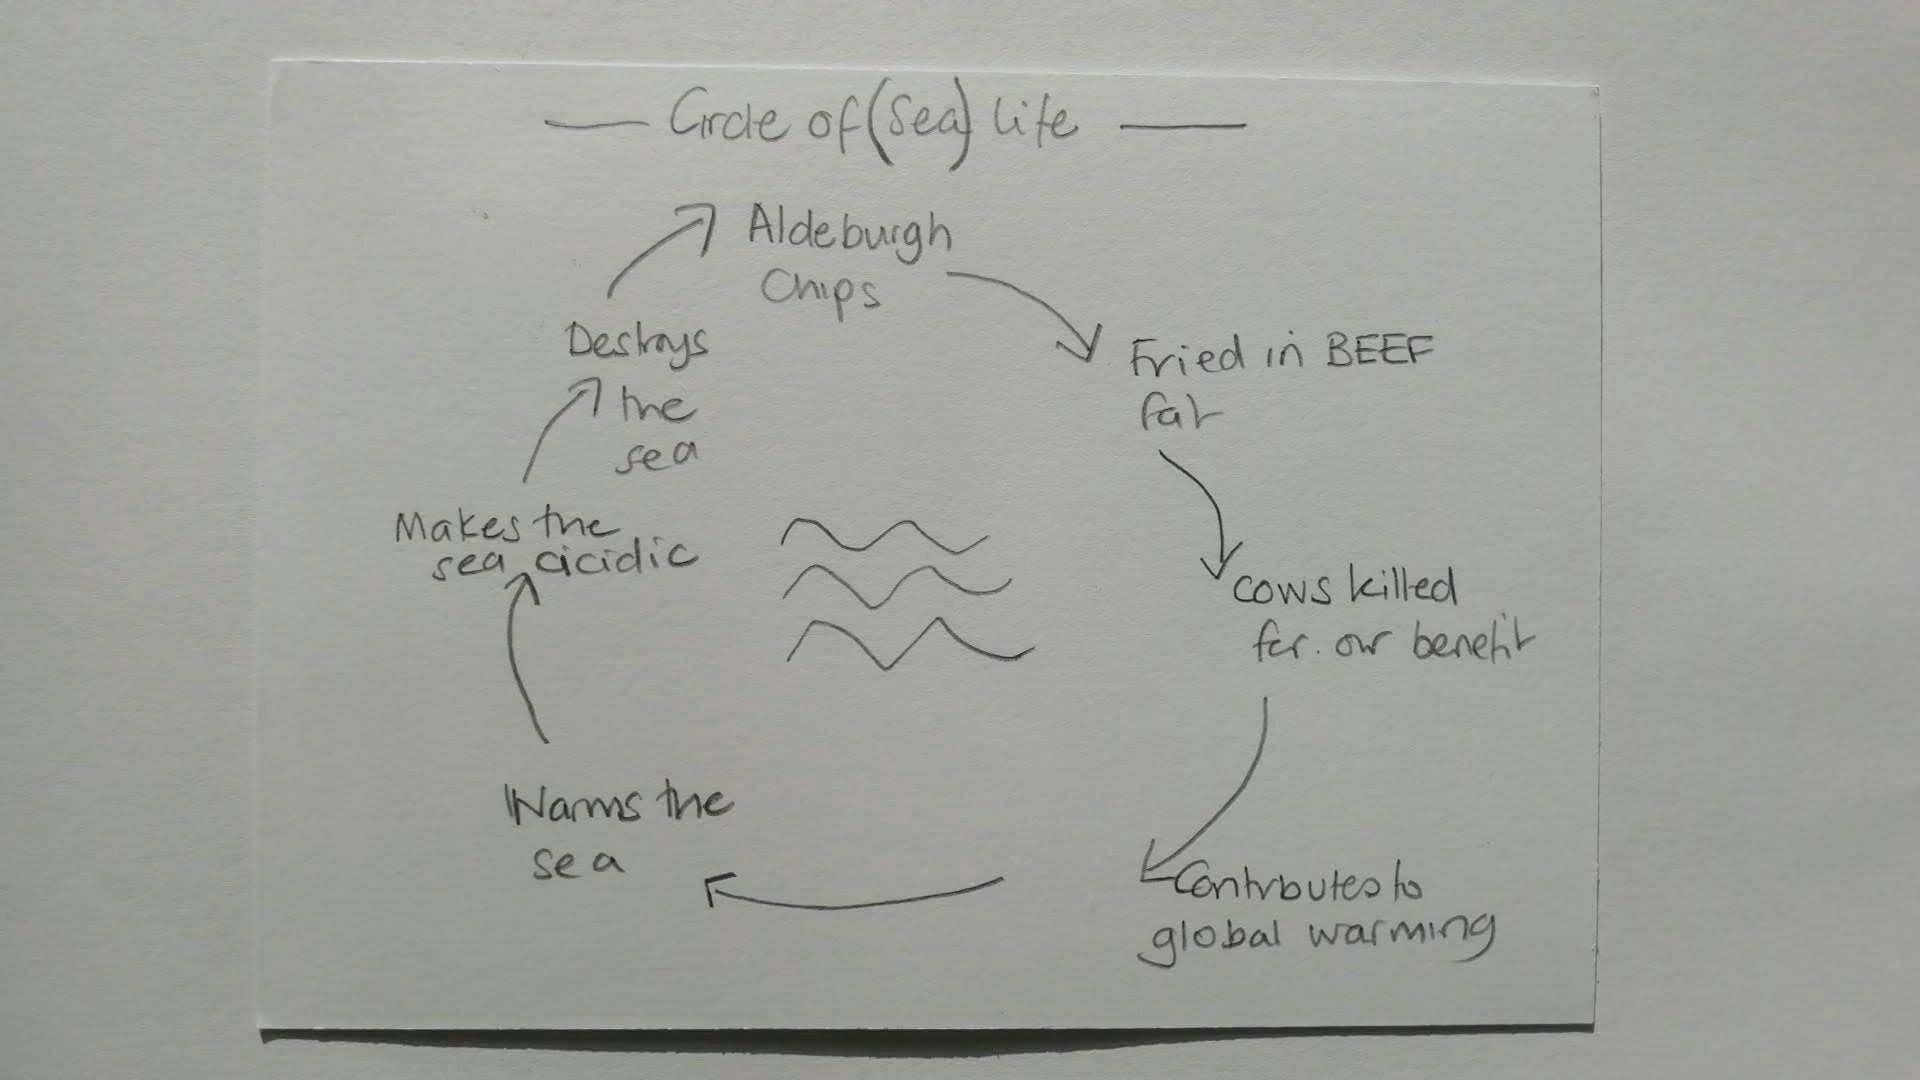 Circle of (Sea) Life
Aldeburgh
Chips
Fried in BEEF
fat
cows killed
for our benefit
Contributes to
global warming
Warms the
sea
Makes the
sea acidic
Destroys
the
sea